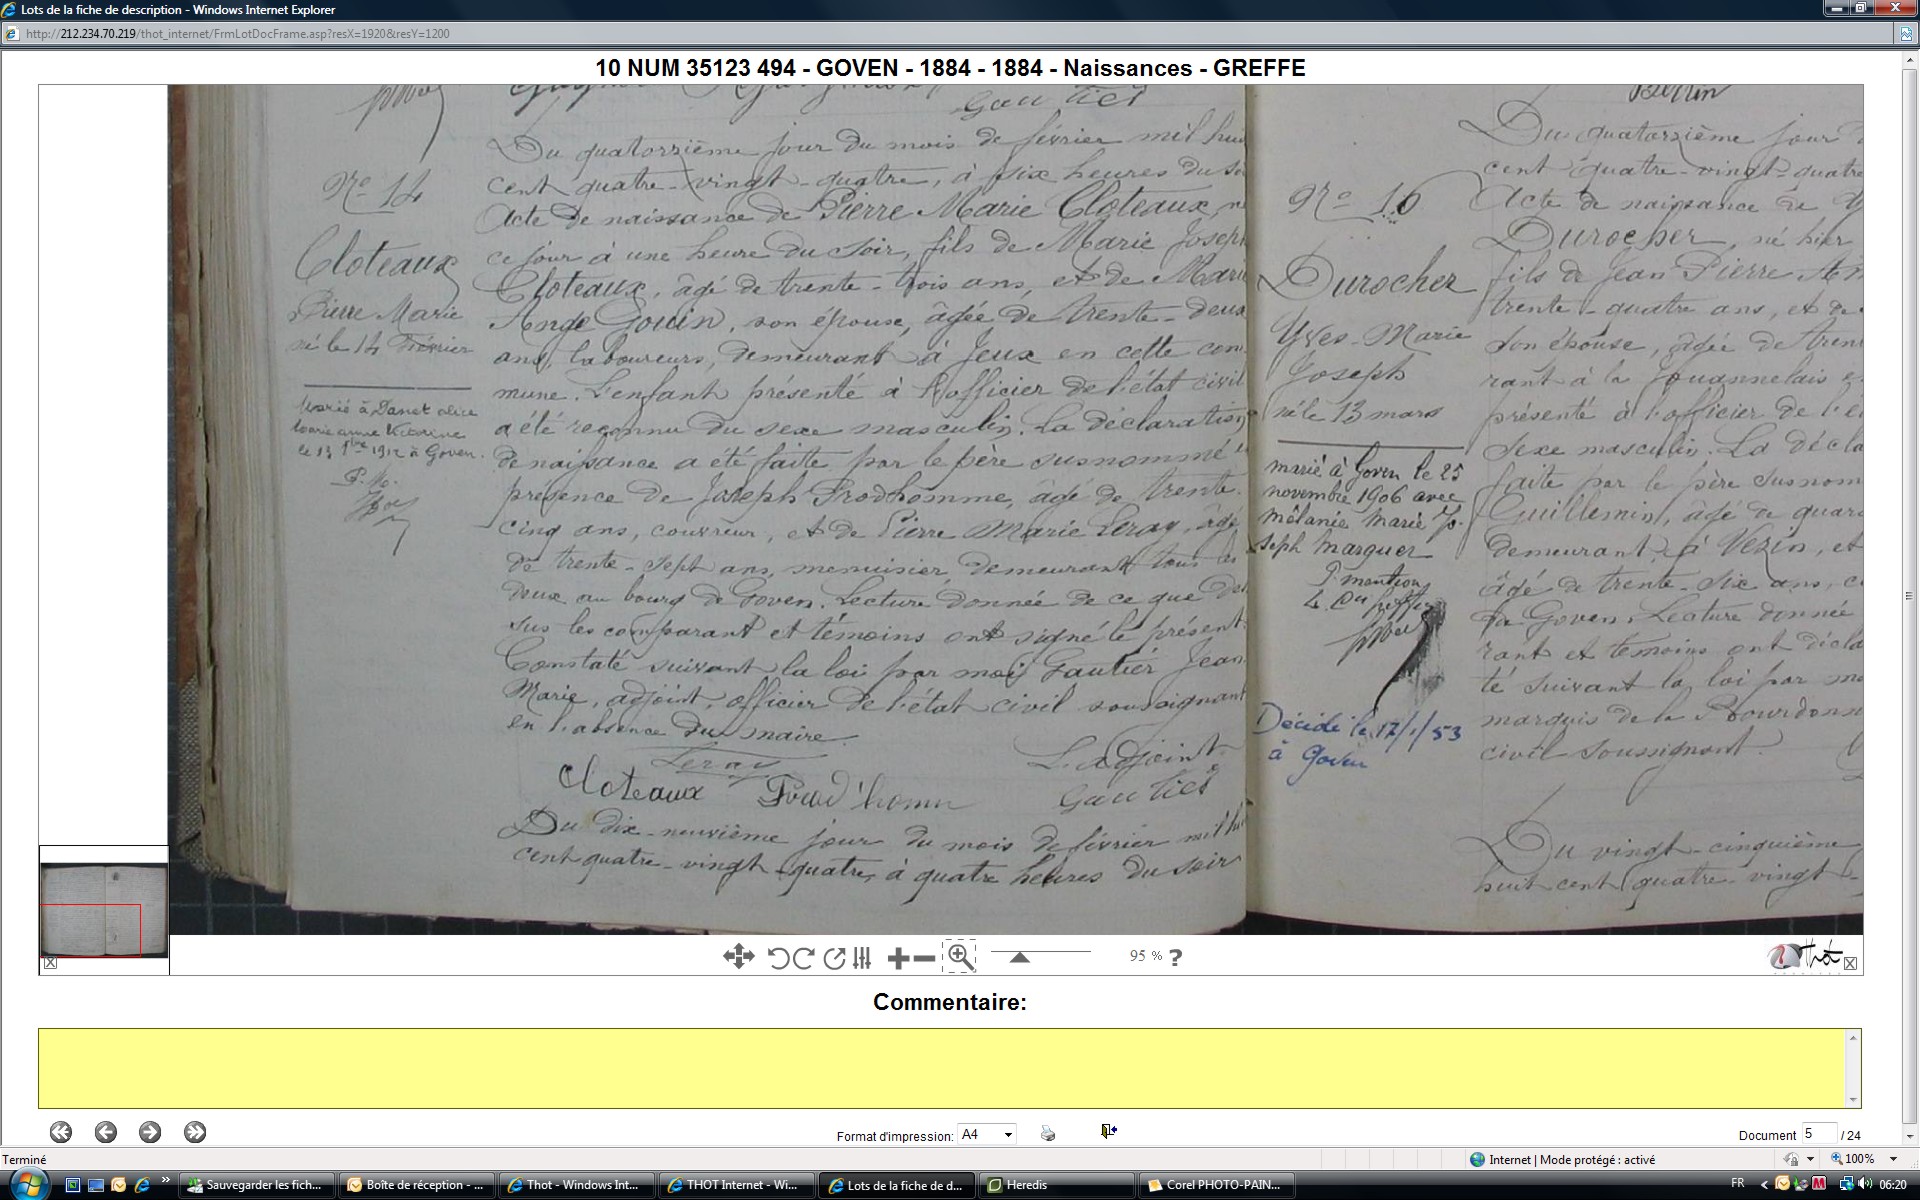 Lots de la fiche de description - Windows Internet Explorer
http://212.234.70.219/thot_internet/FrmLotDocFrame.asp?resX=1920&resY=1200
10 NUM 35123 494 - GOVEN - 1884 - 1884 - Naissances - GREFFE
Gautier
Du quatorzième jour du mois de février mil huit
cent quatre-vingt-quatre, à six heures du soi
Acte de naissance de Pierre Marie Cloteaux, n
ce jour à une heure du soir, fils de Marie Joseph
Cloteaux, âgé de trente-trois ans, et de Marie
Ange Gouin, son épouse, âgée de trente-deux
ans, laboureurs, demeurant à Jeux en cette com
mune. L'enfant présenté à l'officier de l'état civil
a été reconnu du sexe masculin. La déclaration
de naissance a été faite par le père susnommé
présence de Joseph Prodhomme, âgé de trente
cinq ans, couvreur, et de Pierre Marie Leray, âgé
de trente-sept ans, menuisier, demeurant tous les
deux au bourg de Goven. Lecture donnée de ce que des
sus les comparant et témoins ont signé le présent
Constaté suivant la loi par moi Gautier Jean
Marie, adjoint, officier de l'état civil soussignant
en l'absence du maire.
Leray
L'adjoint
Cloteaux Prod'homm
Gautier
Du dix-neuvième jour du mois de février mil hui
cent quatre-vingt-quatre, à quatre heures du soir
Nro 14
Cloteaux
Pierre Marie
né le 14 Février
Marié à Danet Alice
Marie Anne Victorine
le 13 1912 à Goven.
P. M.
Nro 16
Durocher
Yves-Marie
Joseph
né le 13 mars
marié à Goven le 25
novembre 1906 avec
Mélanie Marie Jo-
seph Marquer
P. mention
Décidé le 17/1/53
à Goven
Du quatorzième jour
cent quatre-vingt-quatre
Acte de naissance de Y
Durocher, né hier
fils de Jean Pierre
trente-quatre ans, et de
son épouse, âgée de tren
rant à la Jouannelais
présenté à l'officier de l'é
sexe masculin. La décla
faite par le père susnom
Guillemin, âgé de quara
demeurant à Vezin, et
âgé de trente-six ans, c
Goven. Lecture donnée
rant et témoins ont décla
té suivant la loi par mo
marquis de la Bourdonn
civil soussignant.
Du vingt-cinquième
huit cent quatre-vingt-
95 % ?
Thot
Commentaire:
Format d'impression: A4
Document 5 / 24
Terminé
Internet | Mode protégé : activé
100%
Sauvegarder les fich...
Boîte de réception - ...
Thot - Windows Int...
THOT Internet - Wi...
Lots de la fiche de d...
Heredis
Corel PHOTO-PAIN...
FR
06:20